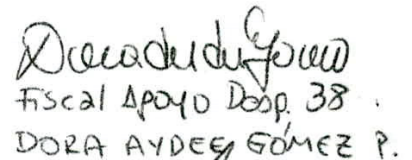 Fiscal Apoyo Desp. 38.
DORA AYDEE GÓMEZ P.